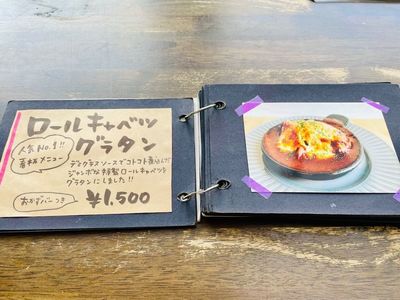 ロールキャベツ
グラタン
人気No.1!!
看板メニュー
デミグラスソースでコトコト煮込んだ
ジャンボな特製ロールキャベツを
グラタンにしました!!
おかずバーつき
¥1,500